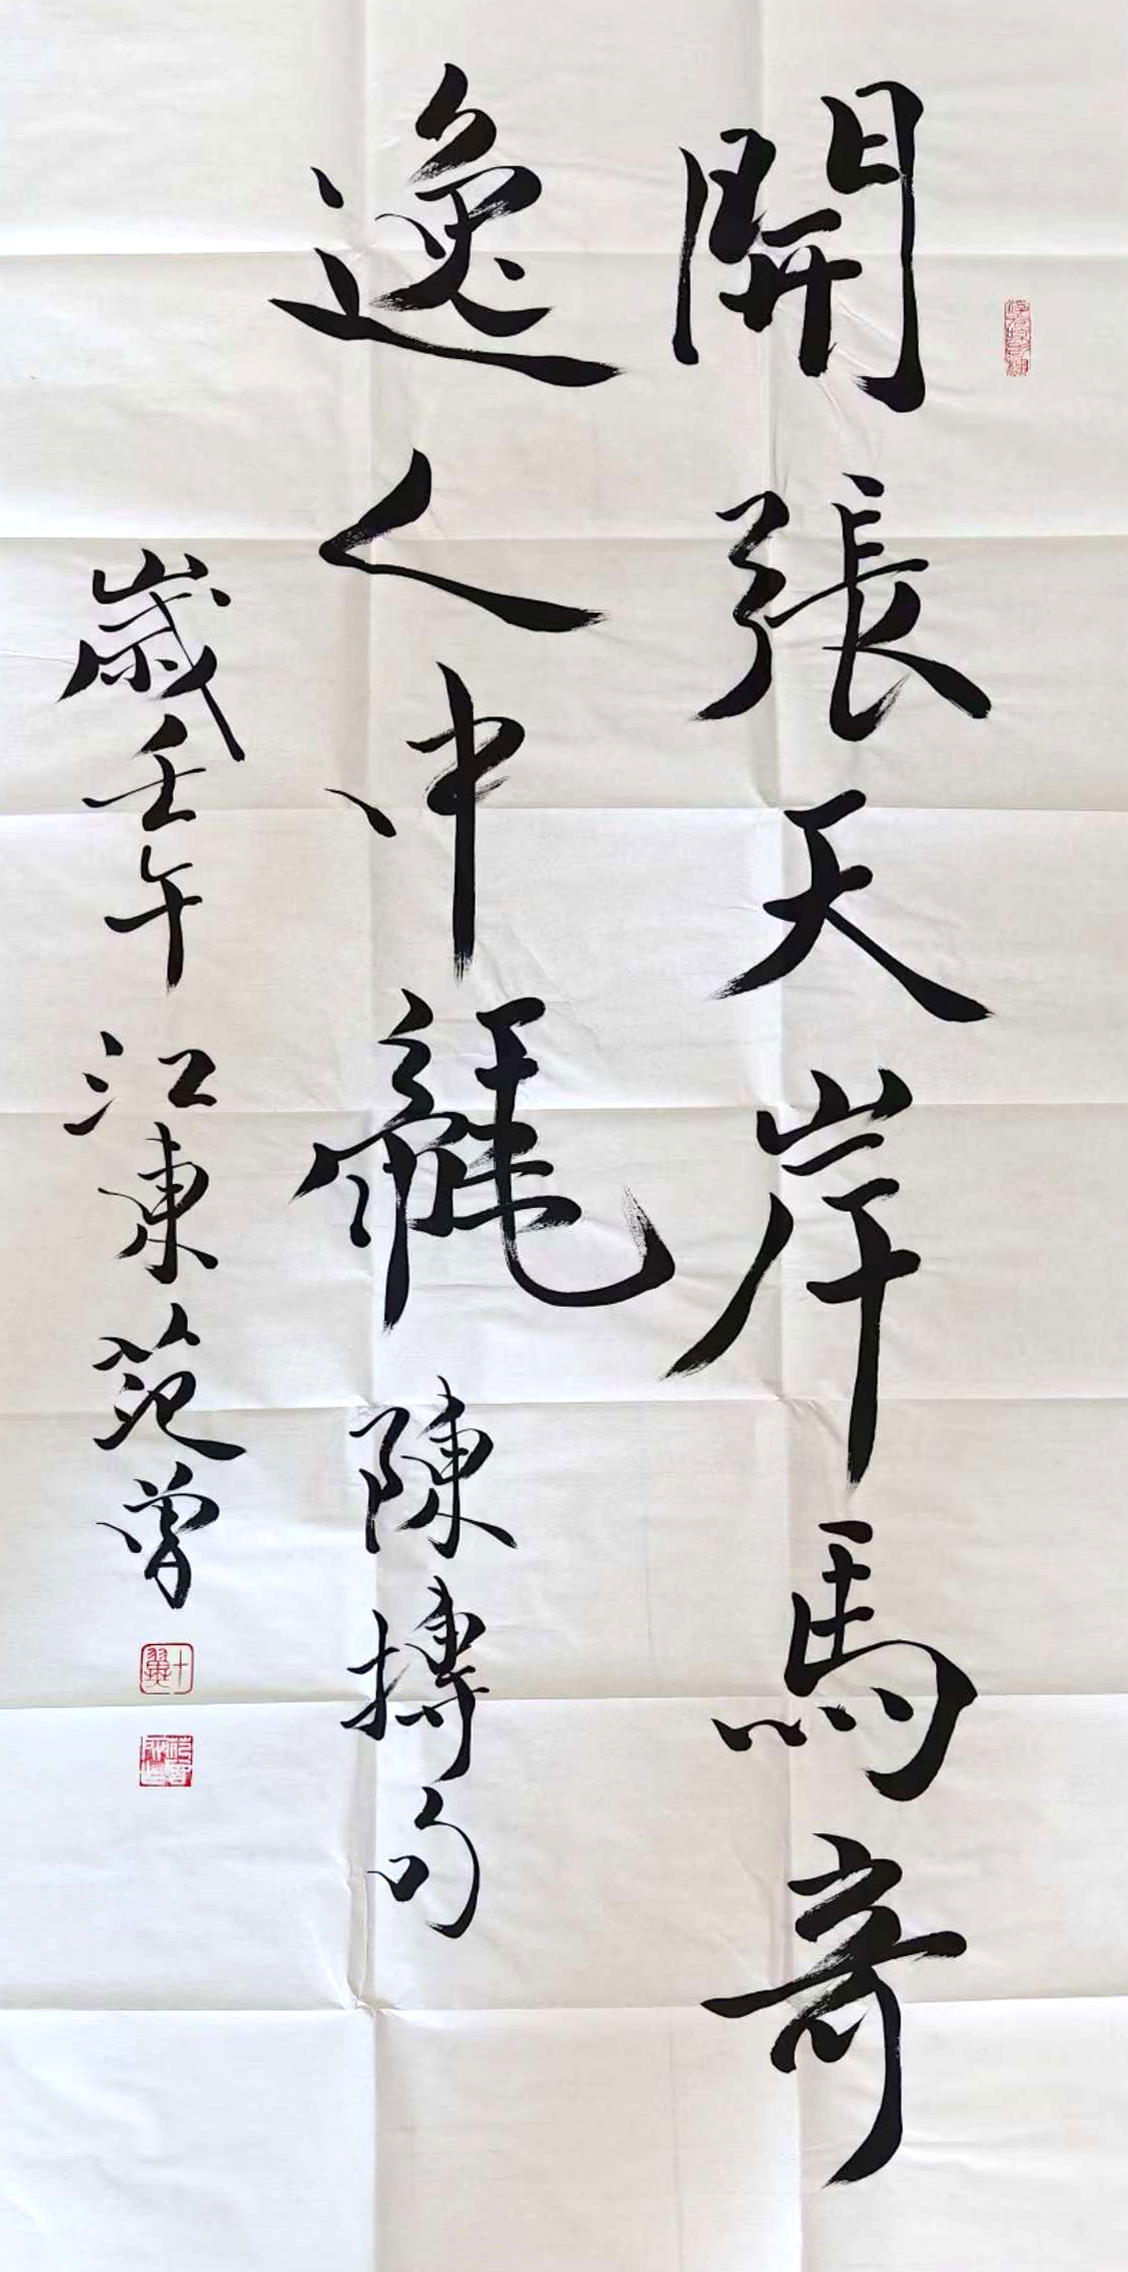 開張天岸馬奇
逸人中龍 陳摶句
歲壬午 江東范曾
十翼